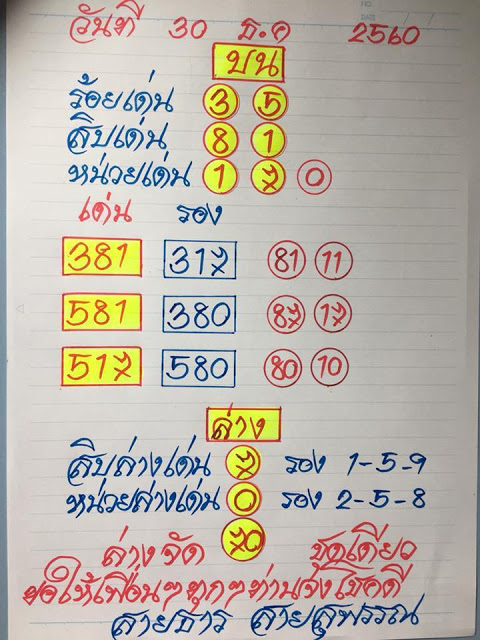 NO.
DATE
วันที่ 30 ธ.ค 2560
บน
ร้อยเด่น 3 5
สิบเด่น 8 1
หน่วยเด่น 1 7 0
เด่น รอง
381 317 81 11
581 380 87 17
517 580 80 10
ล่าง
สิบล่างเด่น 7 รอง 1-5-9
หน่วยล่างเด่น 0 รอง 2-5-8
70
ล่างจัด ชุดเดียว
ขอให้เพื่อนๆทุกๆท่านจงโชคดี
สายธาร สายสุพรรณ